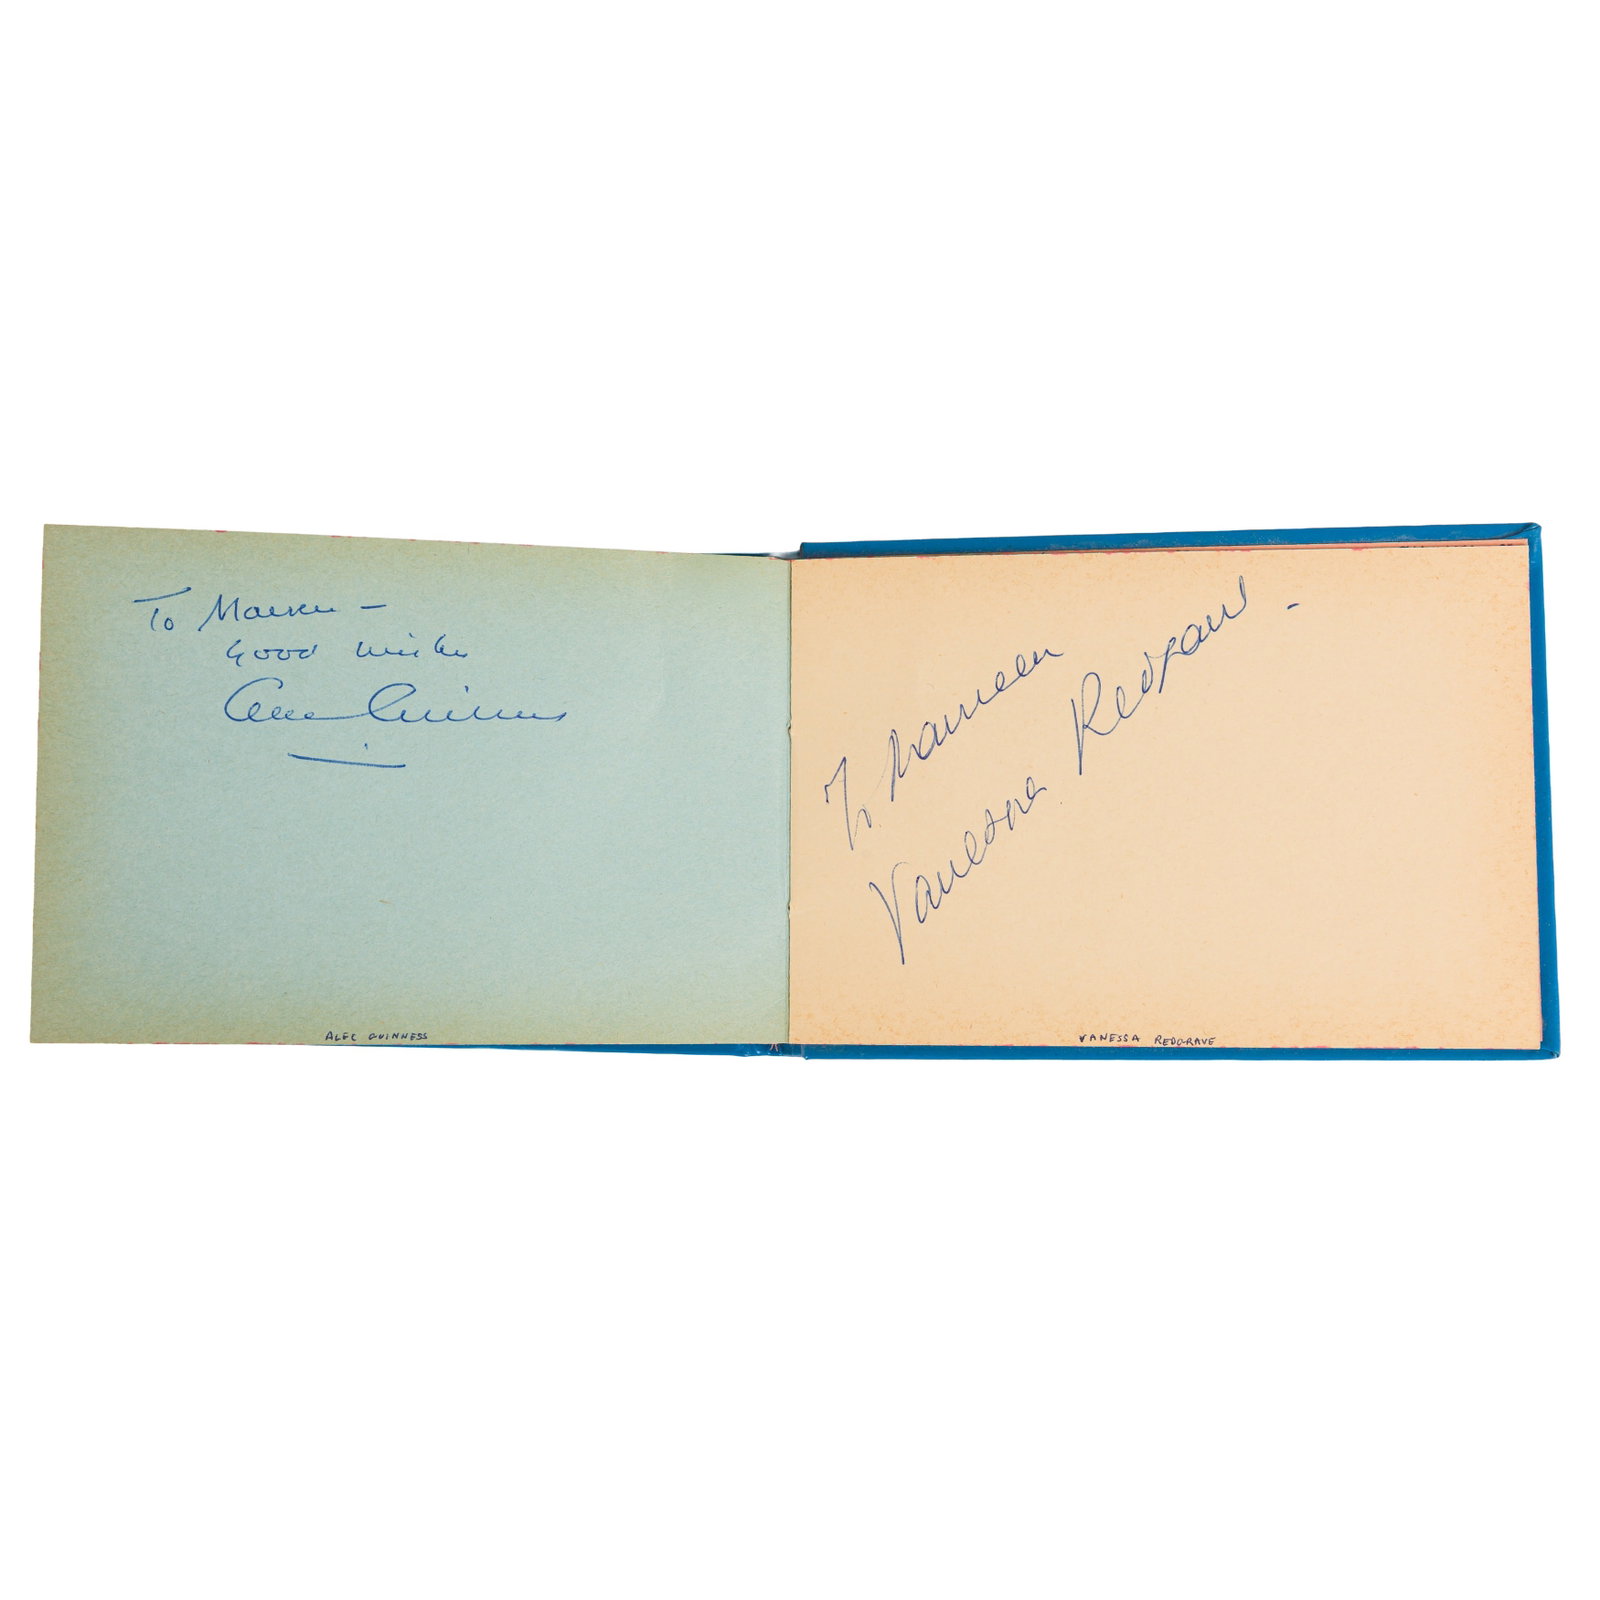 To Maureen –
Good wishes
Alec Guinness
ALEC GUINNESS
To Maureen
Vanessa Redgrave –
VANESSA REDGRAVE